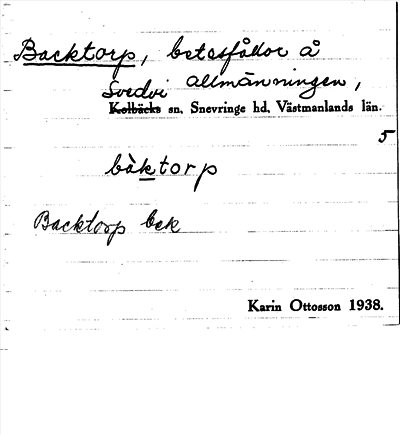 Backtorp, betesfållor å
Svedvi allmänningen,
Kolbäcks sn, Snevringe hd, Västmanlands län.
5
bàktorp
Backtorp bek
Karin Ottosson 1938.